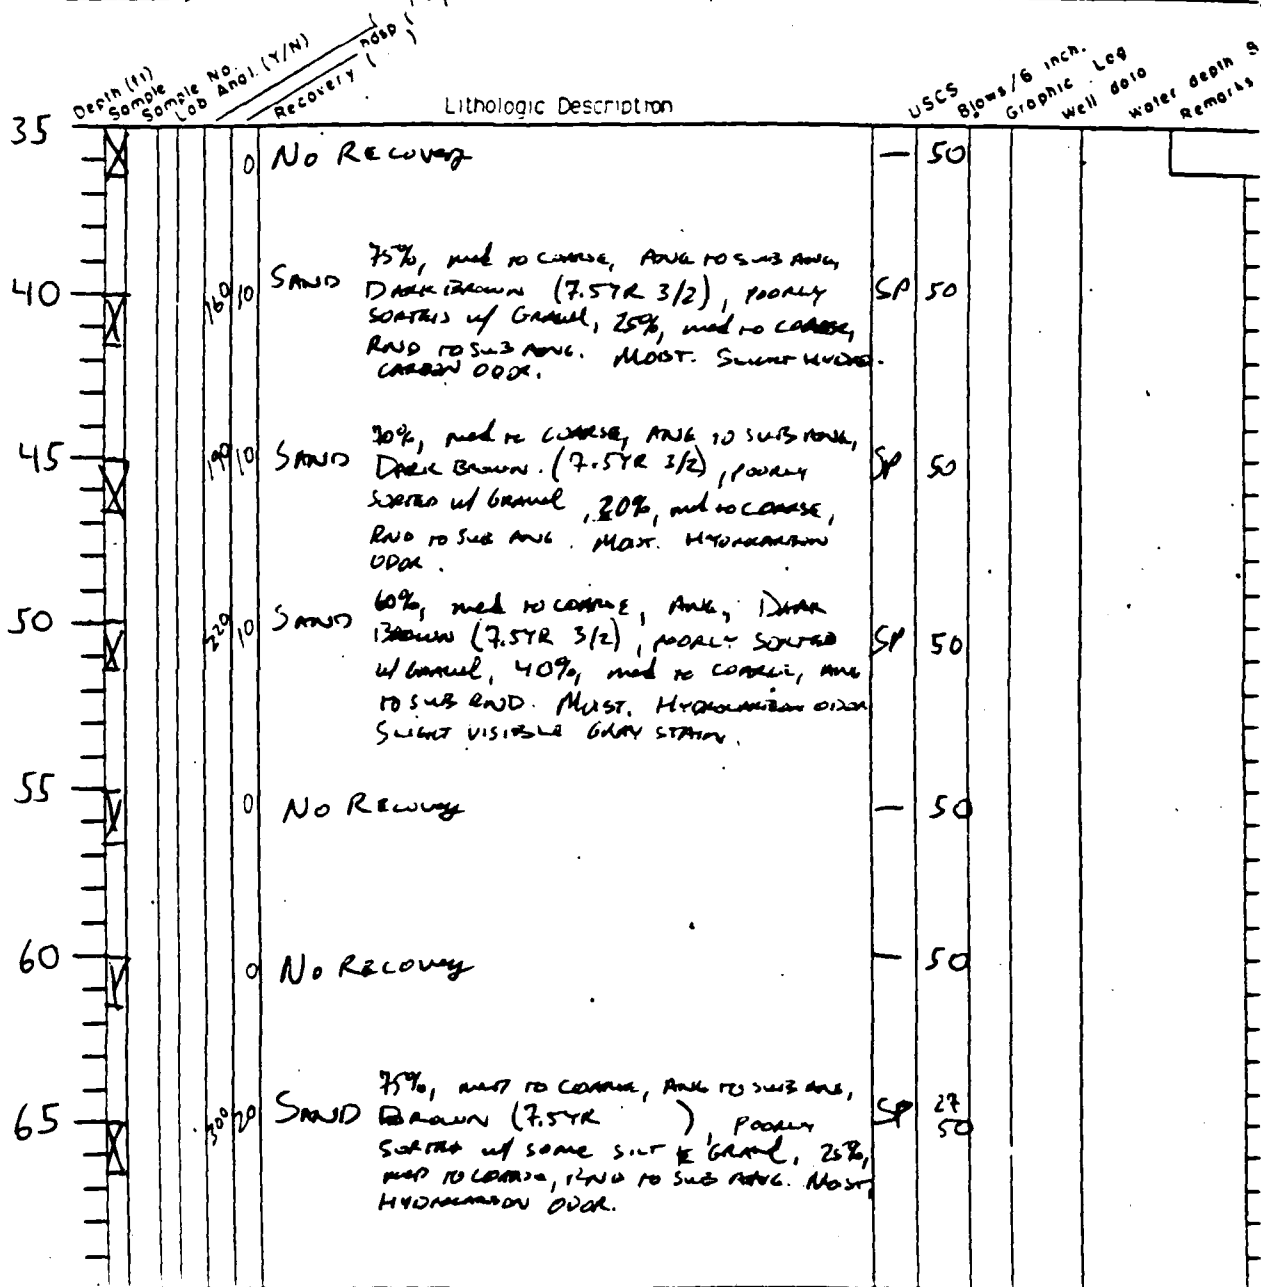 Depth (ft)
Sample
Sample No.
Lab Anal. (Y/N)
Recovery ( )
Lithologic Description
USCS
Blows/6 inch.
Graphic Log
Well data
Water depth
Remarks
35 0 No Recovery — 50
75%, med to coarse, Ang to sub ang,
40 160 10 Sand Dark Brown (7.5YR 3/2), poorly SP 50
sorted w/ Gravel, 25%, med to coarse,
Rnd to sub ang. Moist. Slight Hydro-
carbon odor.
med to coarse, Ang to sub ang,
45 190 10 Sand Dark Brown. (7.5YR 3/2), poorly SP 50
sorted w/ Gravel, 20%, med to coarse,
Rnd to sub ang. Moist. Hydrocarbon
odor.
60%, med to coarse, Ang, Dark
50 220 10 Sand Brown (7.5YR 3/2), poorly sorted SP 50
w/ Gravel, 40%, med to coarse, ang
to sub rnd. Moist. Hydrocarbon odor
Slight visible gray stain.
55 0 No Recovery — 50
60 0 No Recovery — 50
75%, med to coarse, Ang to sub ang,
65 300 20 Sand Brown (7.5YR ), poorly SP 27
50
sorted w/ some silt & Gravel, 25%,
med to coarse, rnd to sub ang. Moist,
Hydrocarbon odor.